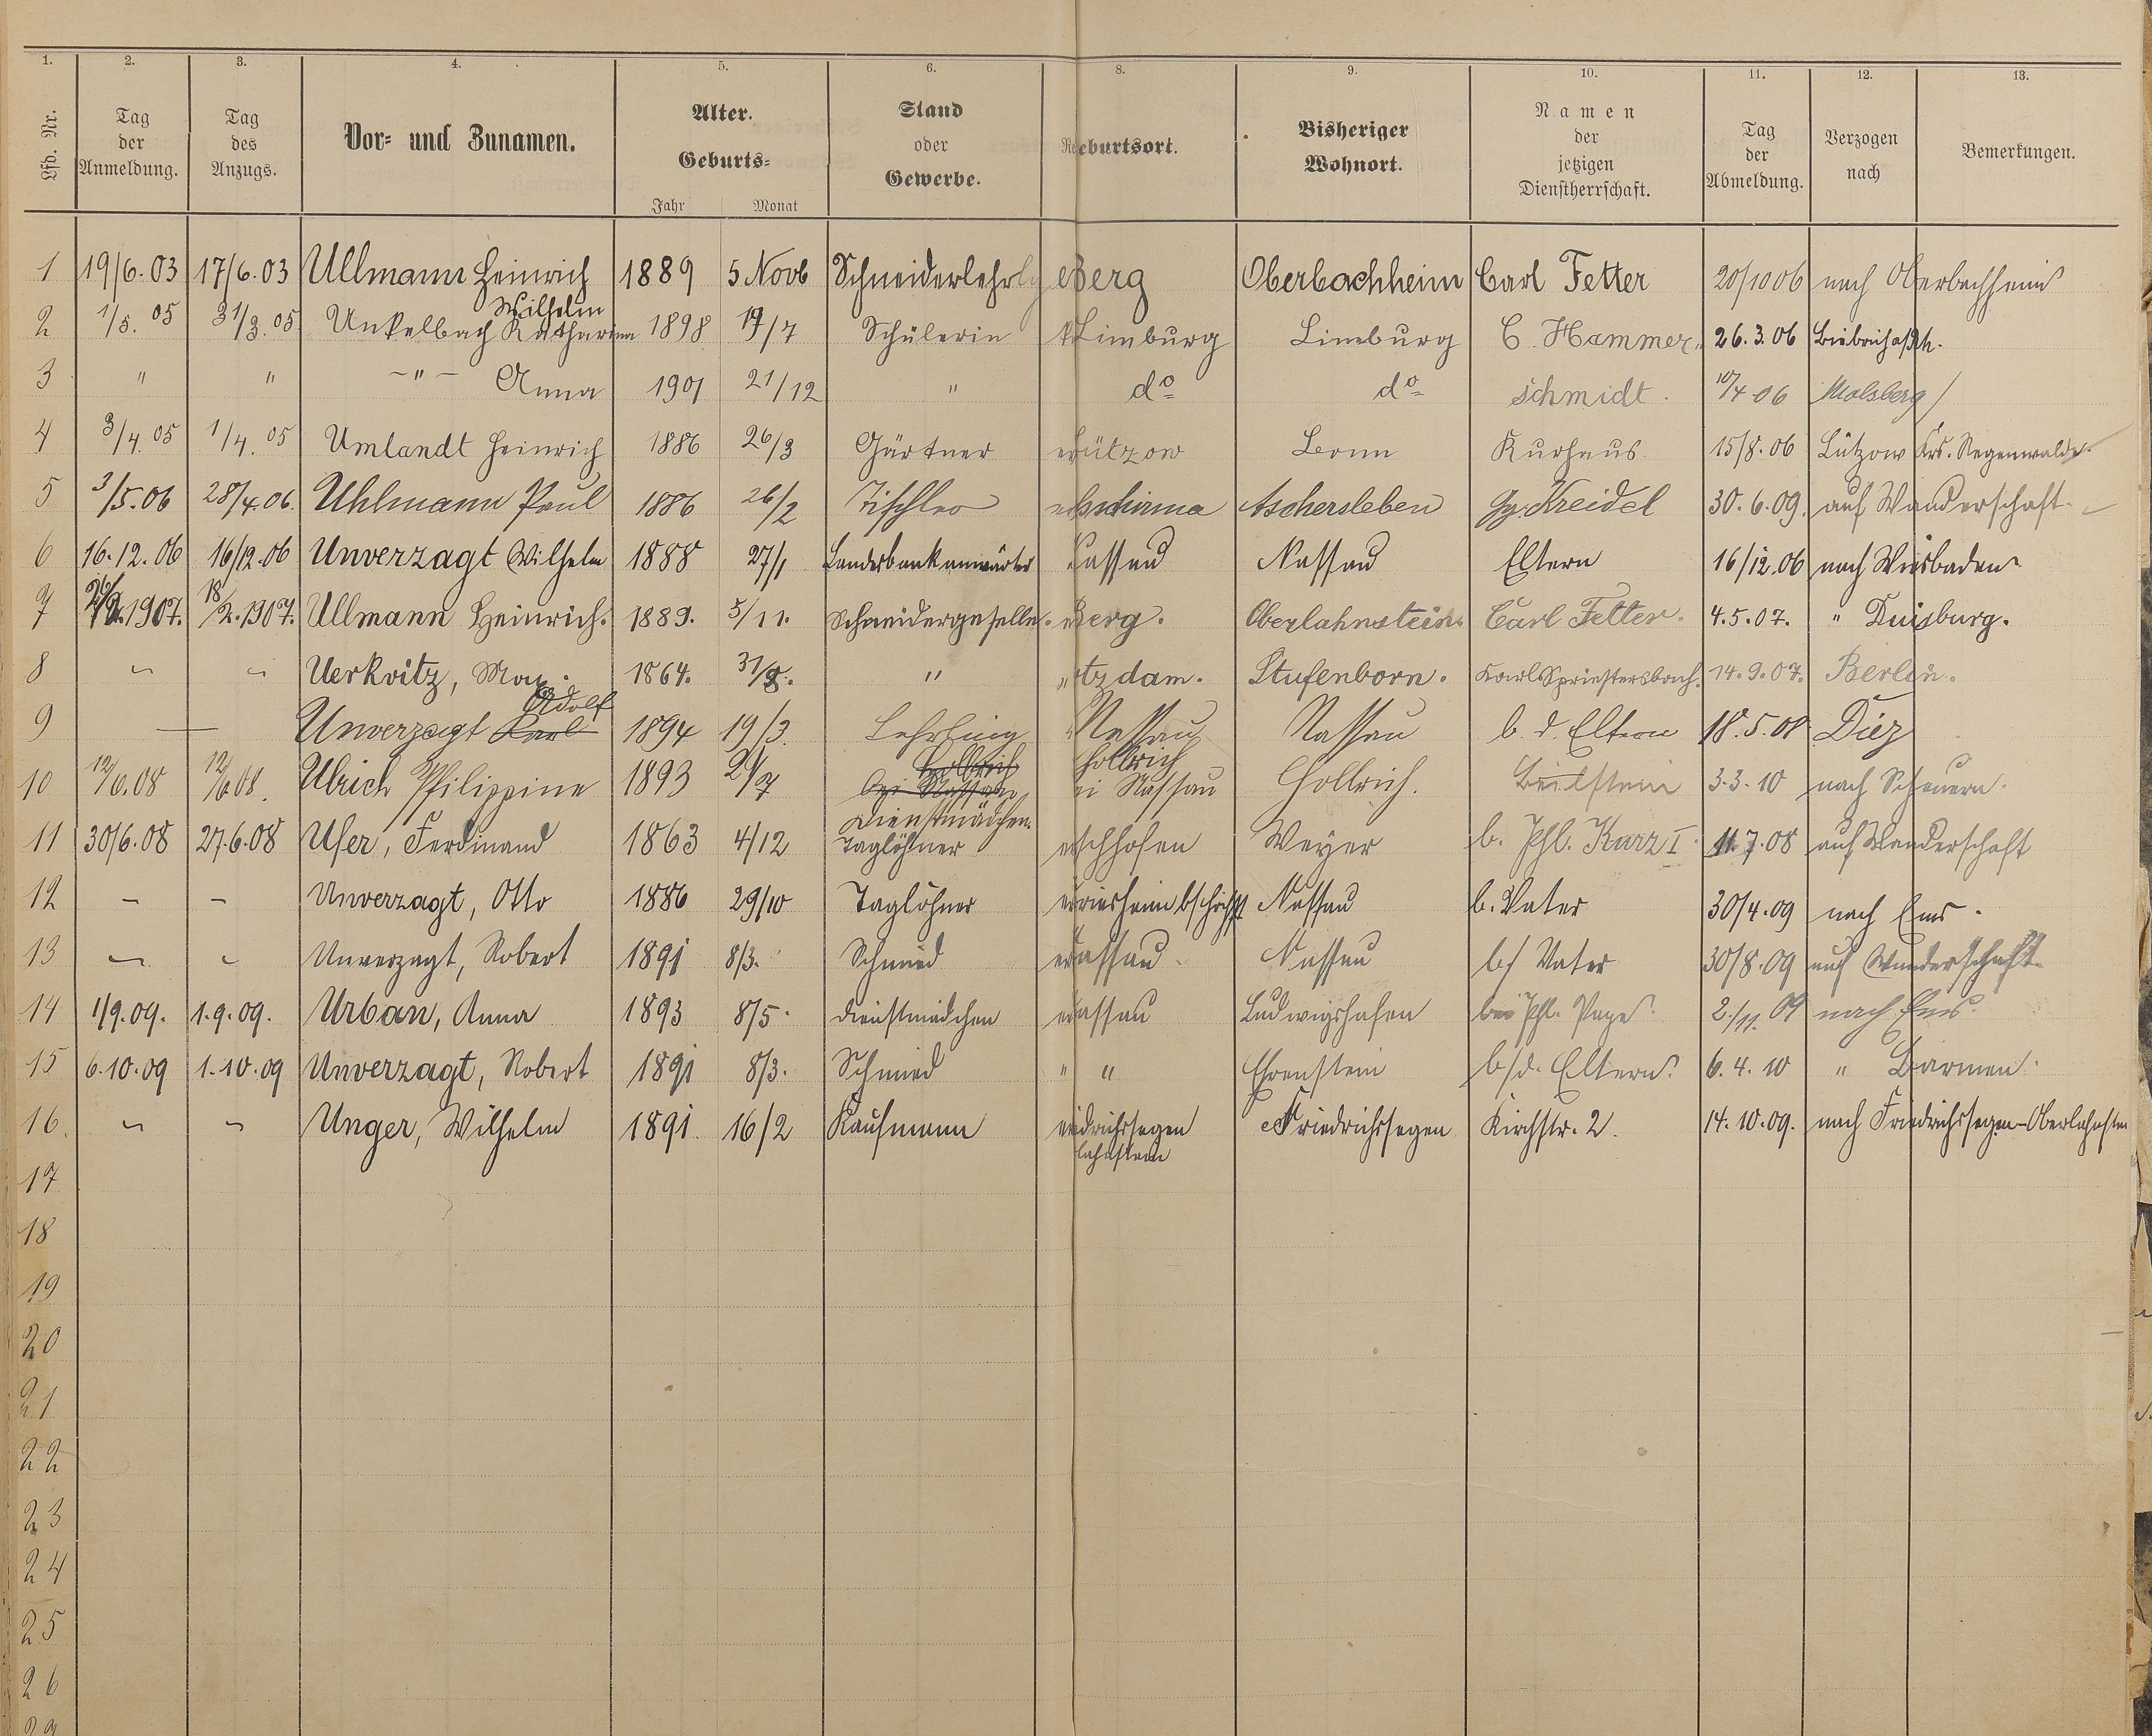 1. 2. 3. 4. 5. 6. 8. 9. 10. 11. 12. 13.
Lfd. Nr. Tag der Anmeldung. Tag des Anzugs. Vor- und Zunamen. Alter. Geburts- Jahr Monat Stand oder Gewerbe. eburtsort. Bisheriger Wohnort. Namen der jetzigen Dienstherrschaft. Tag der Abmeldung. Verzogen nach Bemerkungen.
1 19/6.03 17/6.03 Ullmann Heinrich Wilhelm 1889 5 Novb Schneiderlehrlg Berg Oberbachheim Carl Fetter 20/10 06 nach Oberbachheim
2 1/5. 05 31/3. 05 Unkelbach Katharina 1898 19/7 Schülerin Limburg Limburg C. Hammer 26.3.06 Biebrich a/Rh.
3 " " -"- Anna 1901 21/12 " do do Schmidt. 10/4 06 Molsberg
4 3/4. 05 1/4. 05 Umlandt Heinrich 1886 26/3 Gärtner ützow Bonn Kurhaus 15/8.06 Lützow Krs. Regenwalde.
5 3/5.06 28/4.06. Uhlmann Paul 1886 26/2 Tischler Aschersleben Kreidel 30.6.09. auf Wanderschaft.
6 16.12.06 16/12.06 Unverzagt Wilhelm 1888 27/1 Landesbankanwärter Nassau Nassau Eltern 16/12.06 nach Wiesbaden
7 2.1907. 18/2.1907. Ullmann Heinrich. 1889. 5/11. Schneidergeselle. Berg. Oberlahnstein. Carl Fetter. 4.5.07. " Duisburg.
8 " " Uerkvitz, Max. 1864. 31/8. " tzdam. Stufenborn. Karl Spriestersbach. 14.9.07. Berlin.
9 — Unverzagt Karl Adolf 1894 19/3. Lehrling Nassau Nassau b. d. Eltern 18.5.08 Diez
10 12/6.08 12/6 08. Ulrich Philippine 1893 21/7 Hollrich bei Nassau Dienstmädchen. Hollrich i Nassau Hollrich. Beilstein 3.3.10 nach Scheuern.
11 30/6.08 27.6.08 Ufer, Ferdinand 1863 4/12 Taglöhner schhofen Weyer b. Phl. Kurz I. 11.7.08 auf Wanderschaft
12 - - Unverzagt, Otto 1886 29/10 Taglöhner Nassau b. Vater 30/4.09 nach Ems.
13 " " Unverzagt, Robert 1891 8/3. Schmied assau. Nassau b/ Vater 30/8.09 auf Wanderschaft
14 1/9.09. 1.9.09. Urban, Anna 1893 8/5. Dienstmädchen assau Ludwigshafen bei Phl. 2./11. 09 nach Ems.
15 6.10.09 1.10.09 Unverzagt, Robert 1891 8/3. Schmied " " Ehrenstein b/d. Eltern. 6.4.10 " Barmen.
16. " " Unger, Wilhelm 1891. 16/2 Kaufmann iedrichssegen lahnstein Friedrichssegen Kirchstr. 2. 14.10.09. nach Friedrichssegen-Oberlahnstein
17
18
19
20
21
22
23
24
25
26